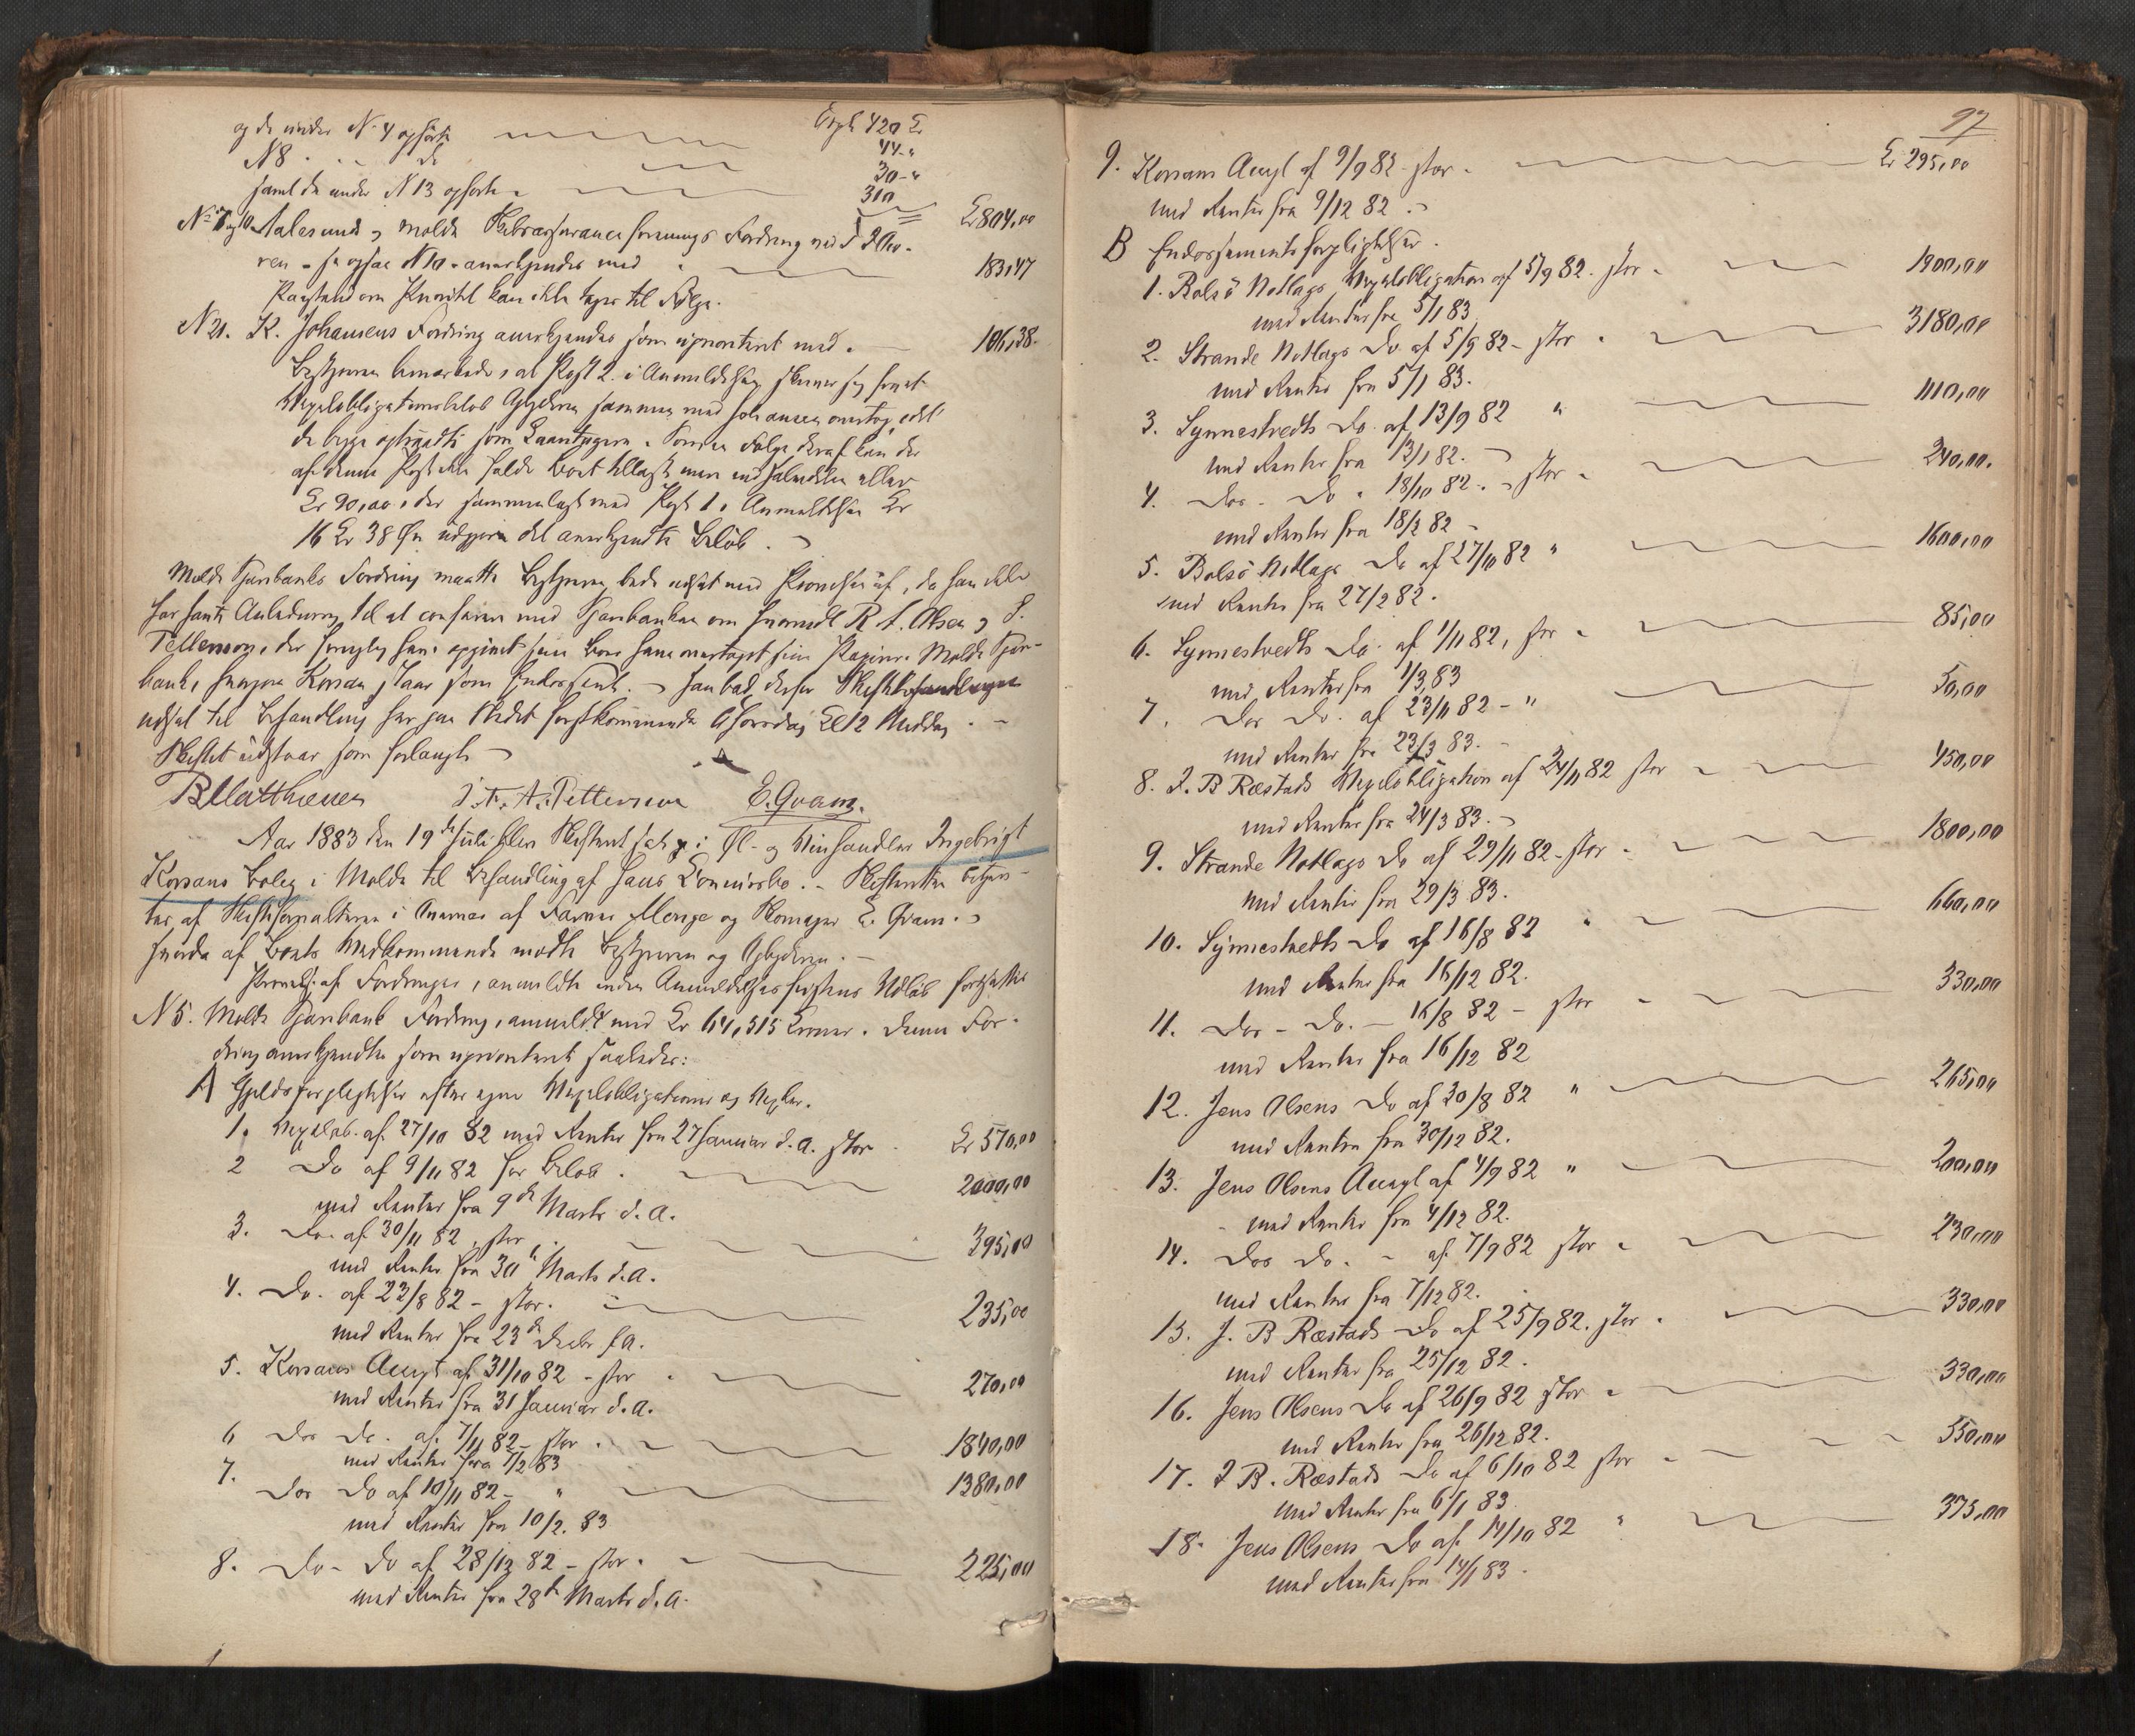 og de under N. 4 opførte Opgl 420 Kr
N 8 . . . do 44 "
30 "
samt de under N 13 opførte 310
Kr 804,00
No 7 og 10. Aalesund og Molde Søbrasurance forenings Fordring ved
ren - se ogsaa N 10 - anerkjendes med 183,47
Paastand om Prioritet kan ikke tages til Følge.
N 21. K. Johansens Fordring anerkjendes som uprioritert med . 106,38.
Bestyreren bemærkede, at Post 2. i Anmeldelsen skriver sig fra et
Vexelobligationsbeløb Opbyderen sammen med Johansen overtog, idet
de begge optraadte som Laantagere. Som en Følge deraf kan der
af denne Post ikke falde Boet tillast mere end Halvdelen eller
Kr 90,00, der sammenlagt med Post 1 i Anmeldelsen Kr
16 Kr 38 Øre udgjøre det anerkjendte Beløb.
Molde Sparebanks Fordring maatte Bestyreren bede udsat med Prøvelsen af, da han ikke
har havt Anledning til at conferere med Sparebanken om hvorvidt R A. Olsen og S.
Pettersen, der har opgivet sine Boer have overtaget sine Papirer i Molde Spare-
bank, hvorpaa Korsan staar som Endossent. – Han bad derfor Skiftebehandlingen
udsat til Behandling her paa Stedet førstkommende Thorsdag Kl 12 Middag. –
Skiftet udstaar som forlangt –
B Matthiesen J. F. A. Pettersen E. Gram.
Aar 1883 den 19de Juli blev Skifteret sat i Øl- og Vinhandler Ingebrigt
Korsans Bolig i Molde til Behandling af hans Konkursbo. – Skifteretten betjen-
tes af Skifteforvalteren i Nærvær af Farver Monge og Skomager E. Gram. –
hvorda af Boets Vedkommende mødte Bestyreren og Opbyderen. –
Prøvelse af Fordringer, anmeldte inden Anmeldelsesfristens Udløb fortsattes
N 5. Molde Sparebank Fordring, anmeldt med Kr 64,515 Kroner. Denne For-
dring anerkjendtes som uprioriteret saaledes:
A Gjeldsforpligtelser efter egne Vexelobligationer og Vexler.
1. Vexelob. af 27/10 82 med Renter fra 27 Januar d. A. stor Kr 570,00
2 Do af 9/11 82 for Beløb . 2000,00
med Renter fra 9de Marts d. A.
3. Do. af 30/11 82, stor . 395,00
med Renter fra 30te Marts d. A.
4. Do. af 23/8 82 – stor. 235,00
med Renter fra 23de Decbr f A.
5. Korsans Accept af 31/10 82 – stor . 270,00
med Renter fra 31 Januar d. A.
6 Dos do. af 7/11 82 – stor . 1840,00
med Renter fra 7/2 83
7. Dos Do af 10/11 82 – " 1380,00
med Renter fra 10/2. 83
8. Do – Do af 28/12 82 – stor . 225,00
med Renter fra 28de Marts d. A.
97
9. Korsans Accpt af 9/9 82 – stor . Kr 295,00
med Renter fra 9/12 82 . –
B Endossementsforpligtelser.
1. Bolsø Notlags Vexelobligation af 5/9 82. stor . 1900,00
med Renter fra 5/1 83
2. Strande Notlags Do. af 5/9 82 – stor . 3180,00
med Renter fra 5/1 83.
3. Synnestvedts Do. af 13/9 82 " 1110,00
med Renter fra 13/1 82.
4. Dos – Do . 18/10 82 – stor . 240,00.
med Renter fra 18/2 82 –
5. Bolsø Notlags Do af 27/10 82 " 1600,00
med Renter fra 27/2 82.
6. Synnestvedts Do. af 1/11 82, stor . 85,00
med Renter fra 1/3 83
7. Dos Do. af 23/11 82 – " 50,00
med Renter fra 23/3 83. –
8. J. B Ræstads Vexelobligation af 24/11 82 stor . 450,00
med Renter fra 24/3 83. –
9. Strande Notlags Do af 29/11 82 – stor . 1800,00
med Renter fra 29/3 83.
10. Synnestvedts Do af 16/8 82 " 660,00
med Renter fra 16/12 82.
11. Dos – Do. – 16/8 82 – stor . 330,00
med Renter fra 16/12 82
12. Jens Olsens Do af 30/8 82 " 265,00
med Renter fra 30/12 82.
13. Jens Olsens Accept af 4/9 82 " 200,00
– med Renter fra 4/12 82.
14. Dos Do. – af 7/9 82 stor . 230,00
med Renter fra 7/12 82.
15. J. B Ræstads Do af 25/9 82. stor . 330,00
med Renter fra 25/12 82.
16. Jens Olsens Do af 26/9 82 stor . 330,00
med Renter fra 26/12 82.
17. J B. Ræstads Do af 6/10 82 stor . 550,00
med Renter fra 6/1 83
18. Jens Olsens Do af 14/10 82 " 375,00
med Renter fra 14/1 83 .